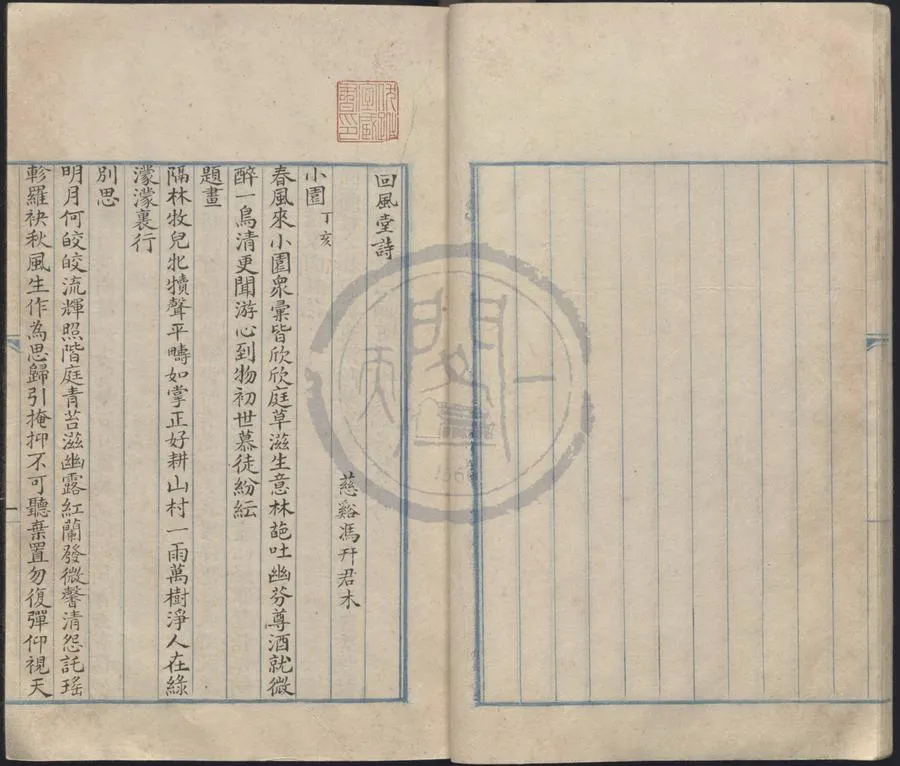 回風堂詩
慈谿馮幵君木
小園 丁亥
春風來小園衆彙皆欣欣庭草滋生意林葩吐幽芬尊酒就微
醉一鳥清更聞游心到物初世慕徒紛紜
題畫
隔林牧兒叱犢聲平疇如掌正好耕山村一雨萬樹淨人在綠
濛濛裏行
別思
明月何皎皎流輝照階庭青苔滋幽露紅蘭發微馨清怨託瑤
軫羅袂秋風生作為思歸引掩抑不可聽棄置勿復彈仰視天